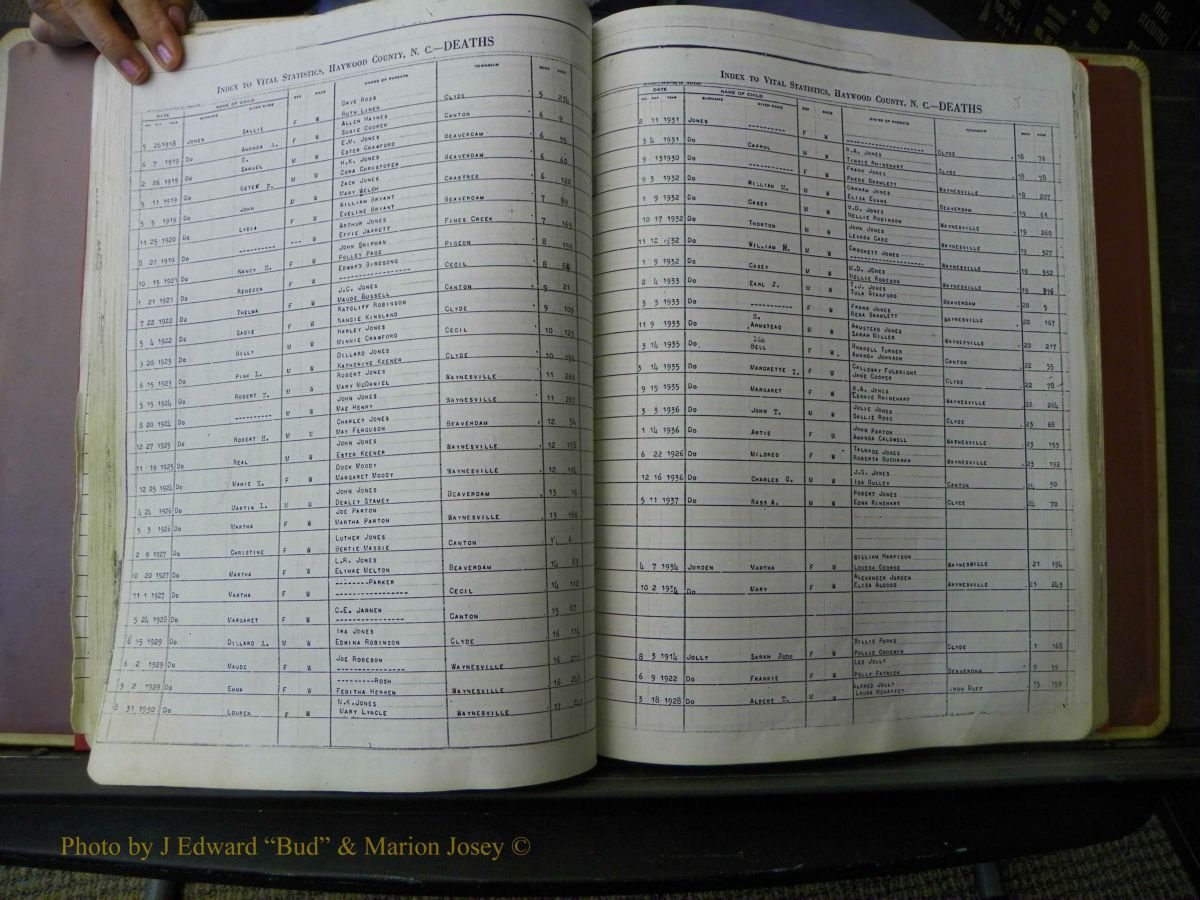 INDEX TO VITAL STATISTICS, HAYWOOD COUNTY, N. C.—DEATHS
DATE NAME OF CHILD SEX RACE NAMES OF PARENTS TOWNSHIP BOOK PAGE
SURNAME GIVEN NAME
5 26 1918 JONES SALLIE F W DAVE ROSS CLYDE 5
RUTH LINER
6 7 1919 Do AMANDA F W ALLEN HAYNES CANTON 6
SUSIE COOPER
2 26 1919 Do SAMUEL M W E.V. JONES BEAVERDAM 6
ESTER CRAWFORD
5 11 1919 Do M H.K. JONES BEAVERDAM 6 60
CORA CHRISTOFER
5 5 1919 Do JOHN M W ZACK JONES CRABTREE 6 122
MARY WELCH
11 25 1920 Do LYDIA F W WILLIAM BRYANT BEAVERDAM 7 89
EVELINE BRYANT
8 22 1919 Do --------- --- W ARTHUR JONES FINES CREEK 7 163
EFFIE JARRETT
10 15 1921 Do NANCY F W JOHN SHIPMAN PIGEON 8
POLLEY PAGE
1 21 1921 Do REBECCA F W EDWARD BIRDSONG CECIL 8
---------------
7 22 1922 Do THELMA F W J.C. JONES CANTON 9 21
MAUDE RUSSELL
5 4 1922 Do SADIE F W RATCLIFF ROBINSON CLYDE 9 109
NANCIE KINSLAND
9 20 1923 Do BILLY M W HARLEY JONES CECIL 10 125
MINNIE CRAWFORD
6 15 1923 Do PINK L. M W DILLARD JONES CLYDE 10
KATHERINE KEENER
5 15 1924 Do ROBERT M W ROBERT JONES WAYNESVILLE 11
MARY McDANIEL
8 20 1924 Do --------- M W JOHN JONES WAYNESVILLE 11 267
MAE HENRY
12 27 1925 Do ROBERT H. M W CHARLEY JONES BEAVERDAM 12
MAY FERGUSON
11 19 1925 Do REAL M W JOHN JONES WAYNESVILLE 12
ESTER KEENER
12 25 1924 Do MAMIE F W DOCK MOODY WAYNESVILLE 12
MARGARET MOODY
4 24 1926 Do MARTIN L. M W JOHN JONES BEAVERDAM 13
DEALEY STAMEY
5 3 1926 Do MARTHA F W JOE PARTON WAYNESVILLE 13 186
MARTHA PARTON
2 9 1927 Do CHRISTINE F W LUTHER JONES CANTON
BERTIE MASSIE
10 20 1927 Do MARTHA F W L.R. JONES BEAVERDAM 14 85
ELYMAE MELTON
11 1 1927 Do MARTHA F W --------PARKER CECIL 14 112
----------------
5 24 1928 Do MARGARET F W C.E. JANNEN CANTON 15 67
----------------
8 15 1929 Do DILLARD M W IRA JONES CLYDE 16
EDWINA ROBINSON
6 2 1929 Do MAUDE F W JOE ROBESON WAYNESVILLE 16
----------------
3 2 1929 Do EMMA F W --------ROSH WAYNESVILLE 16
FEBITHA HERREN
8 31 1930 Do LOUREN F W N.K. JONES WAYNESVILLE 17
MARY LYNGLE
INDEX TO VITAL STATISTICS, HAYWOOD COUNTY, N. C.—DEATHS
DATE NAME OF CHILD SEX RACE NAMES OF PARENTS TOWNSHIP BOOK PAGE
SURNAME GIVEN NAME
2 11 1931 JONES --------- F W ---------------- CLYDE 18 76
R.A. JONES
3 4 1931 Do CARROL M W TINNIE RHINEHART CLYDE 18 78
FRANK JONES
9 13 1930 Do --------- F W PHEBE BRAMLETT WAYNESVILLE 18 207
9 3 1932 Do WILLIAM M W GRAHAM JONES BEAVERDAM 19 63
ELIZA EVANS
1 9 1932 Do CASEY M W V.D. JONES WAYNESVILLE 19 260
NELLIE ROBINSON
10 17 1932 Do THORTON M W JOHN JONES WAYNESVILLE 19 327
LEVADA CABE
11 12 1932 Do WILLIAM H. M W CROCKETT JONES WAYNESVILLE 19 332
----------------
1 9 1932 Do CASEY M W W.D. JONES WAYNESVILLE 19 376
NELLIE ROBESON
2 4 1933 Do EARL J. M W T.J. JONES BEAVERDAM 20 5
TULA STANFORD
3 3 1933 Do --------- F W FRANK JONES WAYNESVILLE 20 167
REBA BRAMLETT
11 9 1933 Do S. ARMSTEAD M W ARMSTEAD JONES WAYNESVILLE 20 217
SARAH MILLER
3 14 1935 Do Ida BELL F W BURRELL TURNER CANTON 22 35
AMANDA JOHNSON
3 14 1935 Do MARGRETTE I. F W CALLOWAY FULBRIGHT CLYDE 22 78
JANE COOPER
9 15 1935 Do MARGARET F W R.A. JONES WAYNESVILLE 22 264
LENNIE RHINEHART
3 3 1936 Do JOHN T. M W JULIE JONES CLYDE 23 68
SALLIE ROSS
1 14 1936 Do ARTIE F W JOHN PARTON WAYNESVILLE 23 153
AMANDA CALDWELL
6 22 1926 Do MILDRED F W TALMAGE JONES WAYNESVILLE 23 192
ROBERTA BUCHANAN
12 16 1936 Do CHARLES G. M W J.G. JONES CANTON 24 30
IDA GULLEY
5 11 1937 Do RASS A. M W ROBERT JONES CLYDE 24 70
EDNA RINEHART
4 7 1934 JORDEN MARTHA F W WILLIAM HARPISON WAYNESVILLE 21 194
LOUESA GEORGE
10 2 1934 Do MARY F W ALEXANDER JORDEN WAYNESVILLE 21 243
ELIZA ALGOOD
8 3 1914 JOLLY SARAH Jane F W BILLIE PARKS CLYDE 1 188
POLLIE GOODWIN
6 9 1922 Do FRANKIE F W LEE JOLLY BEAVERDAM 9 39
POLLY PATRICK
3 18 1928 Do ALBERT T. M W ALFRED JOLLY IRON DUFF 15 159
LAURA MEHAFFEY
Photo by J Edward “Bud” & Marion Josey ©